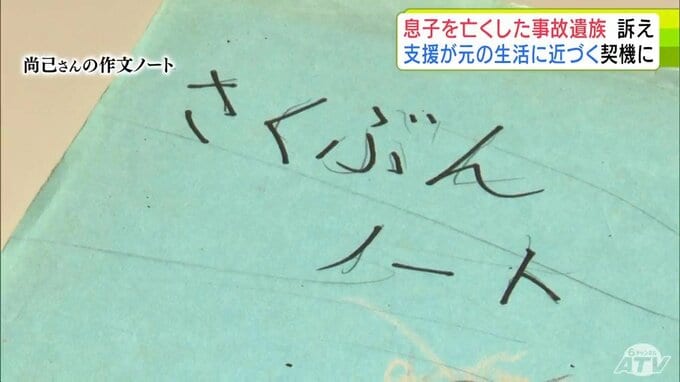 尚己さんの作文ノート
息子を亡くした事故遺族 訴え
支援が元の生活に近づく契機に
さくぶん
ノート
6チャンネル
ATV